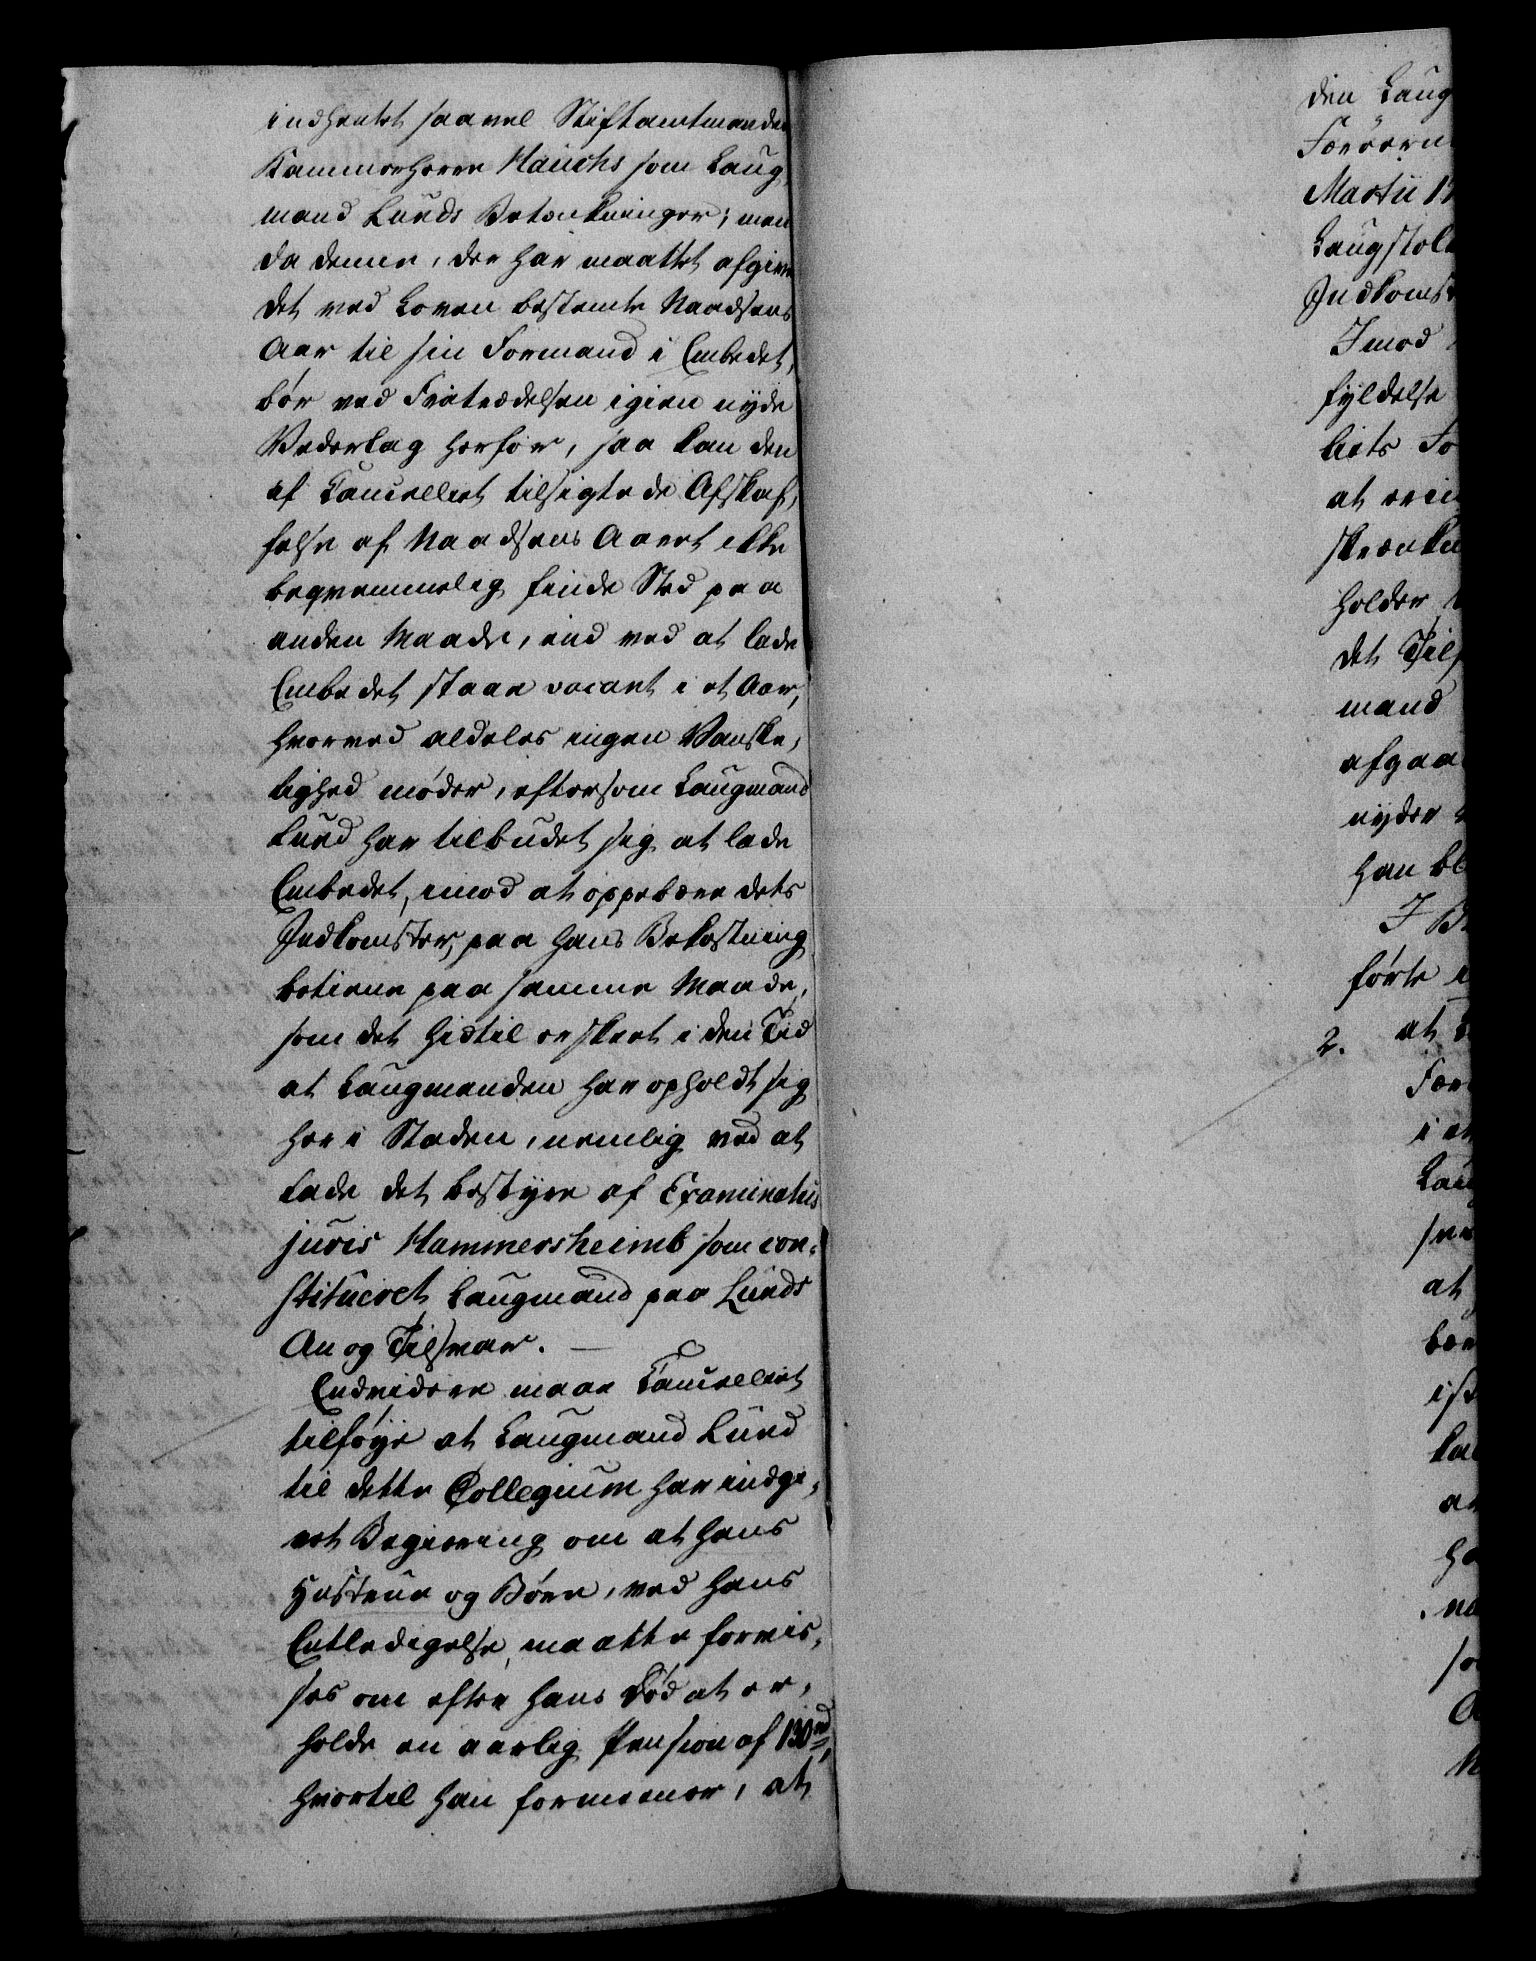 indhentet saavel Stiftamtmanden
Kammerherre Hauchs som Laug-
mand Lunds Betænkninger; men
da denne, der har maattet afgive
det ved Loven bestemte Naadsens
Aar til sin Formand i Embedet,
bør ved Fratrædelsen igien nyde
Vederlag herfor, saa kan den
af Cancelliet tilsigtede Afskaf-
felse af Naadsens Aaret ikke
beqvemmelig finde Sted paa
anden Maade, end ved at lade
Embedet staae vacant i et Aar,
hvorved aldeles ingen Vanske-
lighed møder, eftersom Laugmand
Lund har tilbudet sig at lade
Embedet, imod at oppebære dets
Indkomster, paa hans Bekostning
betiene paa samme Maade,
som det hidtil er skeet i den Tid
at Laugmanden har opholdt sig
her i Staden, nemlig ved at
lade det bestyre af Examinatus
juris Hammersheimb som con-
stitueret Laugmand paa Lunds
An og Tilsvar.
Endvidere maae Cancelliet
tilføye at Laugmand Lund
til dette Collegium har indgi-
vet Begiering om at hans
Hustrue og Børn, ved hans
Entledigelse, maatte forvis-
ses om efter hans Død at er-
holde en aarlig Pension af 130 rd,
hvortil han formener, at
den Laug
Færøern
Martii 17
Laugstole
Indkomst
Imod
fyldelse
liets Fo
at
skrænk
holder
det Tils
mand
afgaa
nyder
han bl
I B
førte
2. at
Fær
i
Lau
at
bær